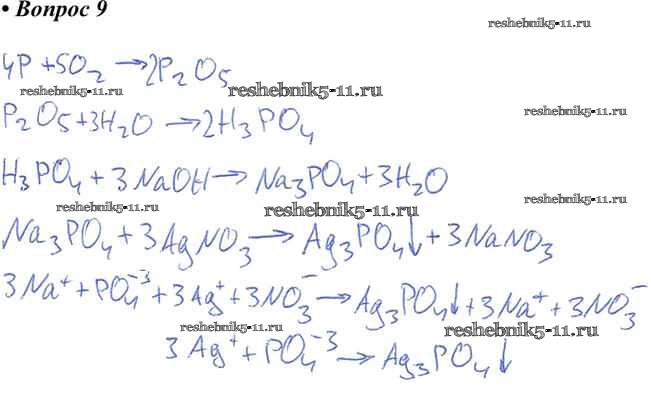 • Вопрос 9
reshebnik5-11.ru
4P + 5O₂ → 2P₂O₅
reshebnik5-11.ru
reshebnik5-11.ru
P₂O₅ + 3H₂O → 2H₃PO₄
reshebnik5-11.ru
H₃PO₄ + 3NaOH → Na₃PO₄ + 3H₂O
reshebnik5-11.ru
reshebnik5-11.ru
reshebnik5-11.ru
Na₃PO₄ + 3AgNO₃ → Ag₃PO₄↓ + 3NaNO₃
3Na⁺ + PO₄⁻³ + 3Ag⁺ + 3NO₃⁻ → Ag₃PO₄↓ + 3Na⁺ + 3NO₃⁻
reshebnik5-11.ru
reshebnik5-11.ru
3Ag⁺ + PO₄⁻³ → Ag₃PO₄↓